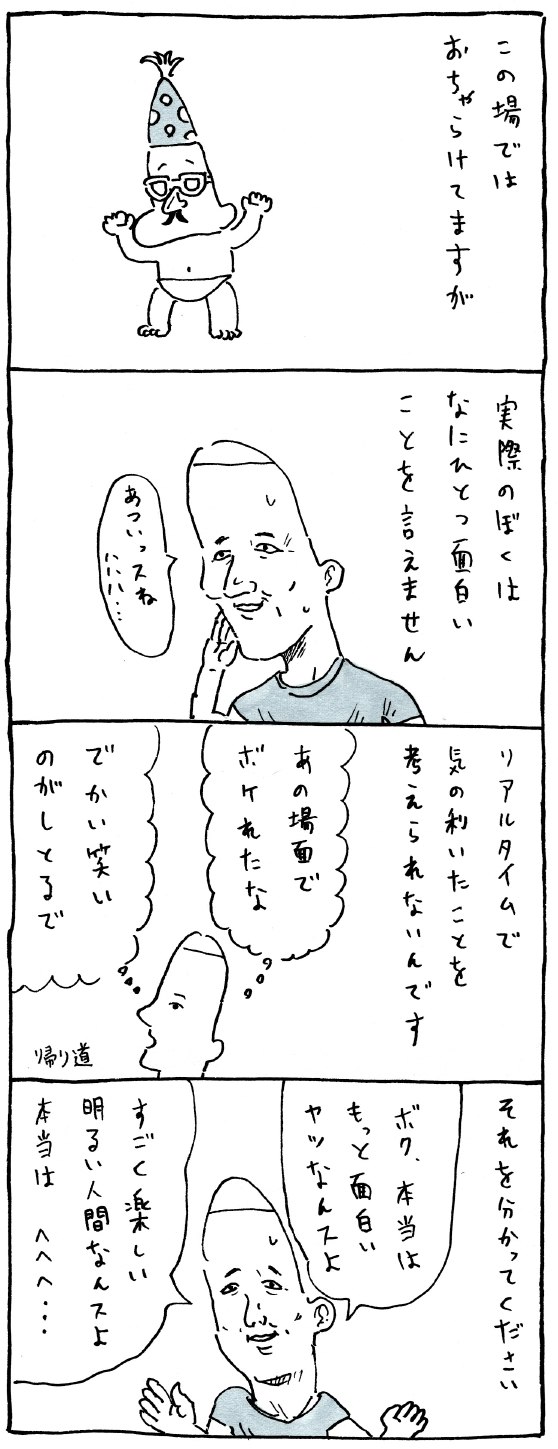 この場では
おちゃらけてますが
実際のぼくは
なにひとつ面白い
ことを言えません
あついっスね
ハハハ…
リアルタイムで
気の利いたことを
考えられないんです
あの場面で
ボケれたな
でかい笑い
のがしとるで
帰り道
それを分かってください
ボク、本当は
もっと面白い
ヤツなんスよ
すごく楽しい
明るい人間なんスよ
本当は へへへ…